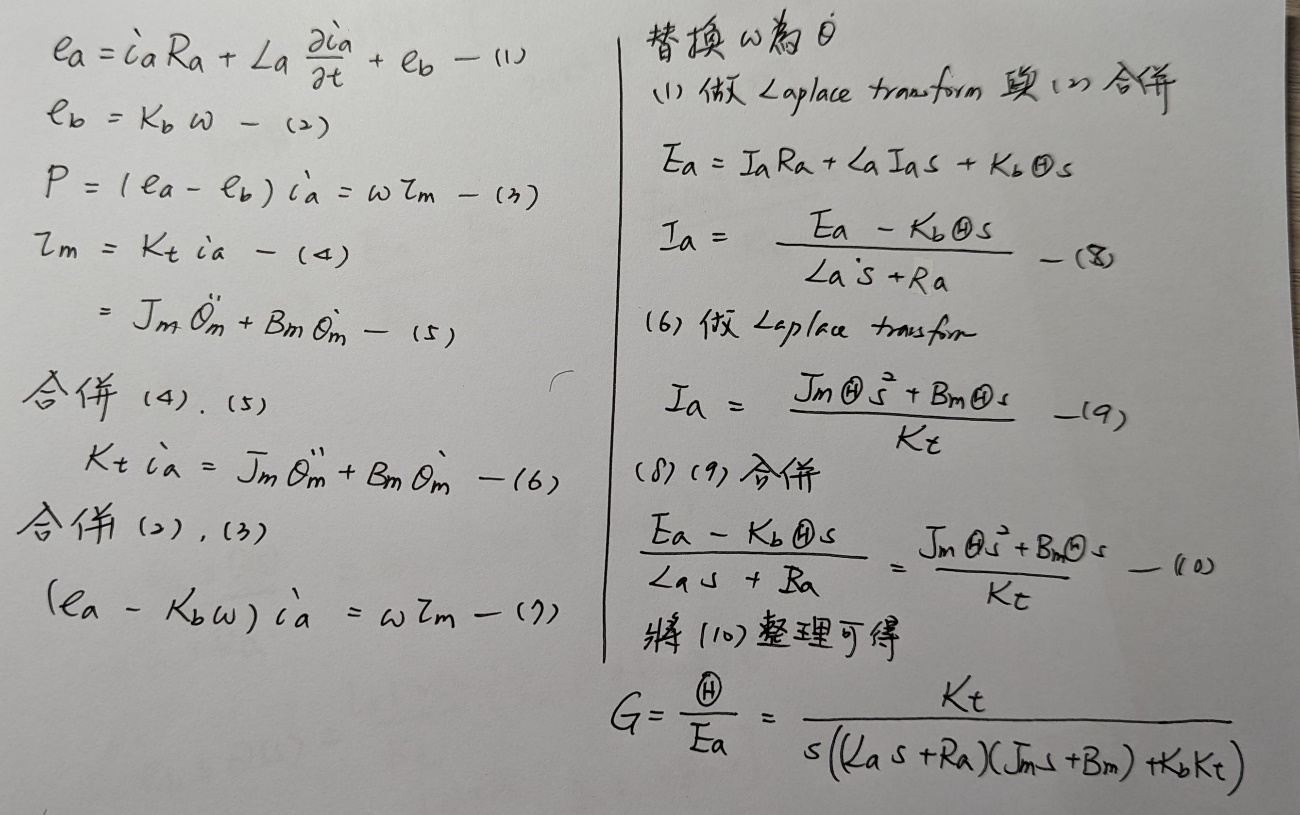 ea = ia Ra + La ∂ia/∂t + eb — (1)
eb = Kb ω — (2)
P = (ea - eb) ia = ω τm — (3)
τm = Kt ia — (4)
= Jm θ̈m + Bm θ̇m — (5)
合併 (4). (5)
Kt ia = Jm θ̈m + Bm θ̇m — (6)
合併 (2), (3)
(ea - Kbω) ia = ω τm — (7)
替換 ω 為 θ̇
(1) 做 Laplace transform 與 (2) 合併
Ea = Ia Ra + La Ia s + Kb Θ s
Ia = (Ea - Kb Θ s) / (La s + Ra) — (8)
(6) 做 Laplace transform
Ia = (Jm Θ s² + Bm Θ s) / Kt — (9)
(8) (9) 合併
(Ea - Kb Θ s) / (La s + Ra) = (Jm Θ s² + Bm Θ s) / Kt — (10)
將 (10) 整理可得
G = Θ / Ea = Kt / s((La s + Ra)(Jm s + Bm) + Kb Kt)